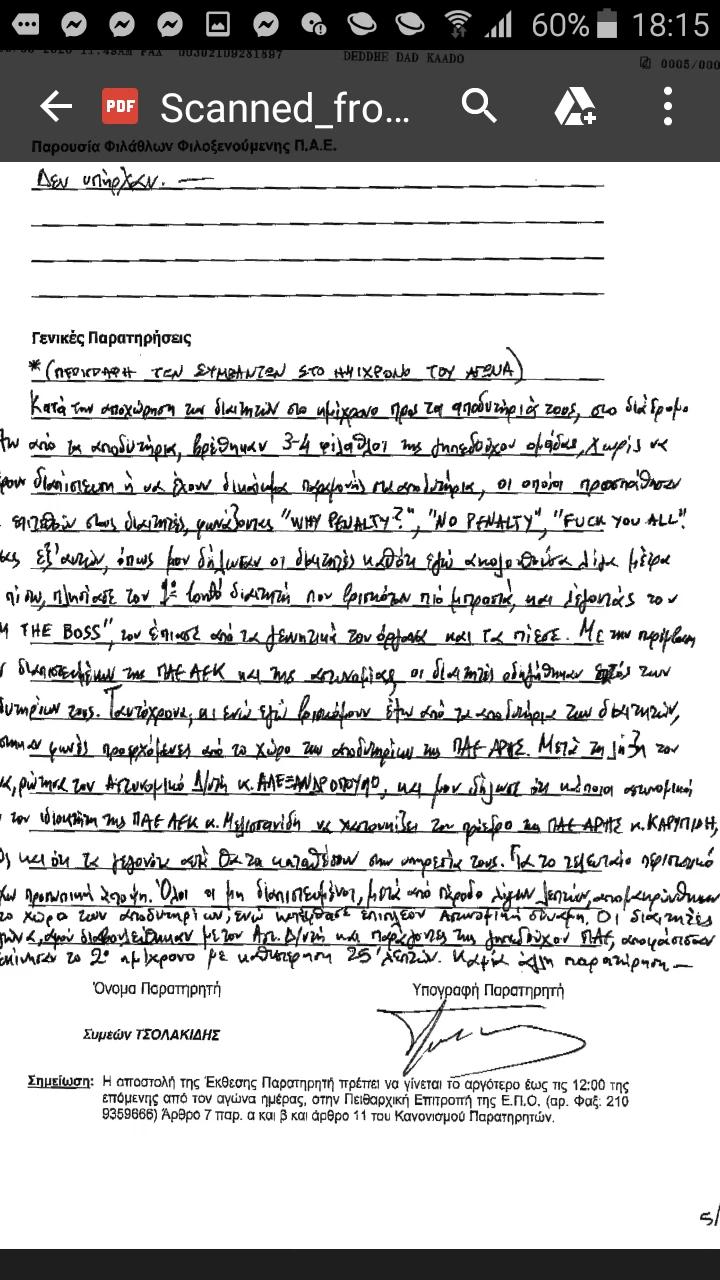 60% 18:15
11:49AM FAX 00302109281897 DEDDHE DAD KAADO 0005/000
Scanned_fro...
PDF
Παρουσία Φιλάθλων Φιλοξενούμενης Π.Α.Ε.
Δεν υπήρχαν. —
Γενικές Παρατηρήσεις
*(ΠΕΡΙΓΡΑΦΗ ΤΩΝ ΣΥΜΒΑΝΤΩΝ ΣΤΟ ΗΜΙΧΡΟΝΟ ΤΟΥ ΑΓΩΝΑ)
Κατά την αποχώρηση των διαιτητών στο ημίχρονο προς τα αποδυτήριά τους, στο διάδρομο
από τα αποδυτήρια, βρέθηκαν 3-4 φίλαθλοι της γηπεδούχου ομάδας, χωρίς να
διαπίστευση ή να έχουν δικαίωμα παραμονής στα αποδυτήρια, οι οποίοι προσπάθησαν
επιτεθούν στους διαιτητές, φωνάζοντας "WHY PENALTY?", "NO PENALTY", "FUCK YOU ALL".
εξ' αυτών, όπως μου δήλωσαν οι διαιτητές καθότι εγώ ακολουθούσα λίγα μέτρα
πίσω, πλησίασε τον 1ο βοηθό διαιτητή που βρισκόταν πιο μπροστά, και λέγοντάς του
THE BOSS", τον έπιασε από τα γεννητικά του όργανα και τα πίεσε. Με την παρέμβαση
διαπιστευμένων της ΠΑΕ ΑΕΚ και της αστυνομίας, οι διαιτητές οδηγήθηκαν εντός των
τους. Ταυτόχρονα, κι ενώ εγώ βρισκόμουν έξω από τα αποδυτήρια των διαιτητών,
φωνές προερχόμενες από το χώρο των αποδυτηρίων της ΠΑΕ ΑΡΗΣ. Μετά τη λήξη του
ρώτησα τον Αστυνομικό Δ/ντή κ. ΑΛΕΞΑΝΔΡΟΠΟΥΛΟ, και μου δήλωσε ότι κάποιοι αστυνομικοί
τον ιδιοκτήτη της ΠΑΕ ΑΕΚ κ. Μελισσανίδη να χαστουκίζει τον πρόεδρο της ΠΑΕ ΑΡΗΣ κ. ΚΑΡΥΠΙΔΗ,
και ότι τα γεγονότα αυτά θα τα καταθέσουν στην υπηρεσία τους. Για το τελευταίο περιστατικό
προσωπική άποψη. Όλοι οι μη διαπιστευμένοι, μετά από πάροδο λίγων λεπτών, απομακρύνθηκαν
το χώρο των αποδυτηρίων, ενώ κατέφθασε επιπλέον Αστυνομική δύναμη. Οι διαιτητές
αφού διαβουλεύθηκαν με τον Αστ. Δ/ντή και παράγοντες της γηπεδούχου ΠΑΕ, αποφάσισαν
το 2ο ημίχρονο με καθυστέρηση 25' λεπτών. Καμία άλλη παρατήρηση —
Όνομα Παρατηρητή Υπογραφή Παρατηρητή
Συμεών ΤΣΟΛΑΚΙΔΗΣ
Σημείωση: Η αποστολή της Έκθεσης Παρατηρητή πρέπει να γίνεται το αργότερο έως τις 12:00 της
επόμενης από τον αγώνα ημέρας, στην Πειθαρχική Επιτροπή της Ε.Π.Ο. (αρ. Φαξ: 210
9359666) Άρθρο 7 παρ. α και β και άρθρο 11 του Κανονισμού Παρατηρητών.
5/